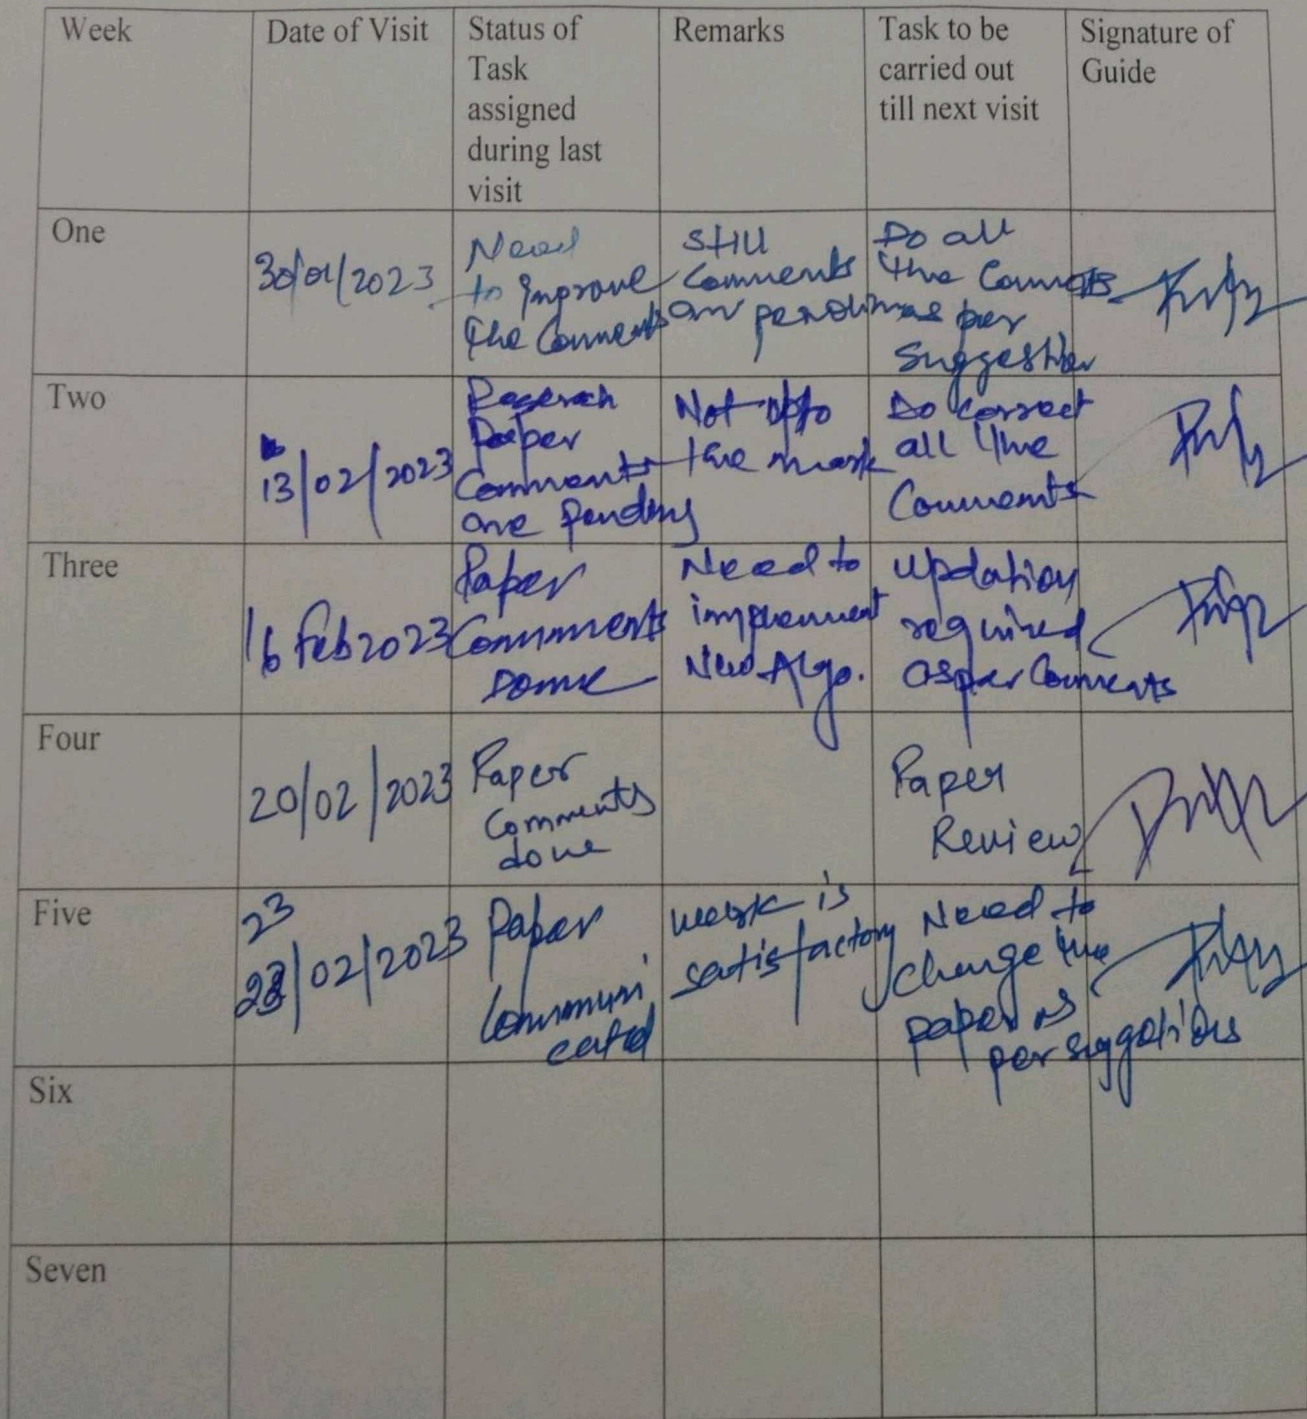 Week
Date of Visit
Status of
Task
assigned
during last
visit
Remarks
Task to be
carried out
till next visit
Signature of
Guide
One
30/01/2023
Need
to Improve
the Comments
Still
Comments
are pending
Do all
the Comments
as per
Suggestion
Two
13/02/2023
Research
Paper
Comments
are pending
Not upto
the mark
Do correct
all the
Comments
Three
16 Feb 2023
Paper
Comments
Done
Need to
implement
New Algo.
Updation
required
as per Comments
Four
20/02/2023
Paper
Comments
done
Paper
Review
Five
23
23/02/2023
Paper
Communi
cated
work is
satisfactory
Need to
change the
paper as
per suggetions
Six
Seven